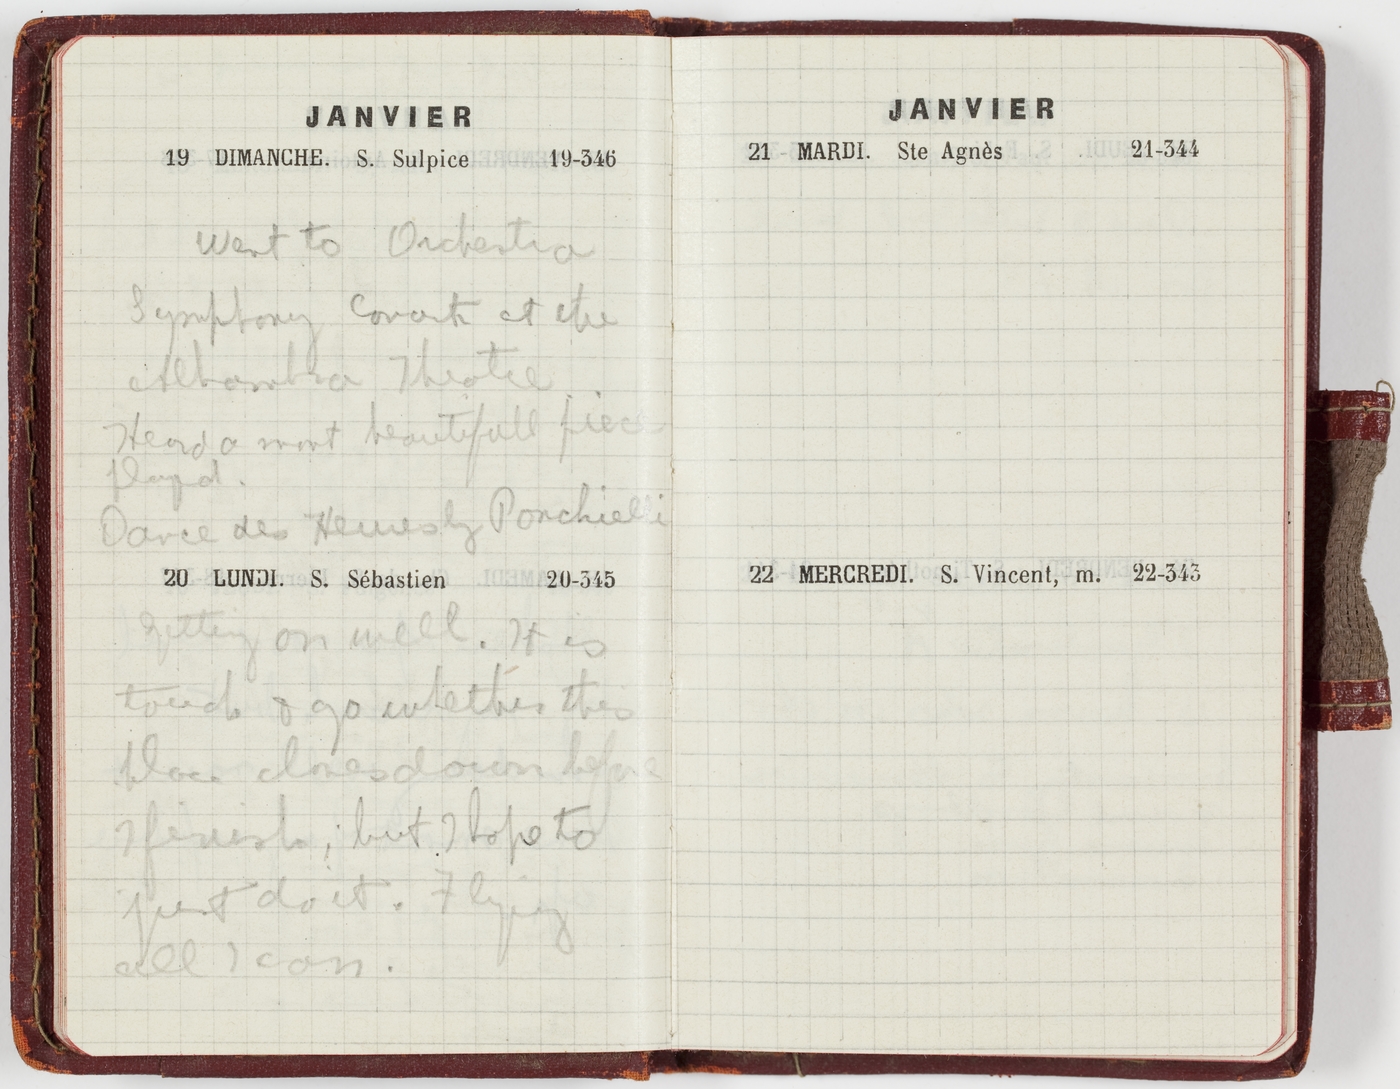 JANVIER
19 DIMANCHE. S. Sulpice 19-346
Went to Orchestra
Symphony Concerts at the
Alhambra Theatre.
Heard a most beautifull piece
playd.
Dance des Heures by Ponchielli
20 LUNDI. S. Sébastien 20-345
Getting on well. It is
touch & go whether this
place closes down before
I finish; but I hope to
just do it. Flying
all I can.
JANVIER
21 MARDI. Ste Agnès 21-344
22 MERCREDI. S. Vincent, m. 22-343